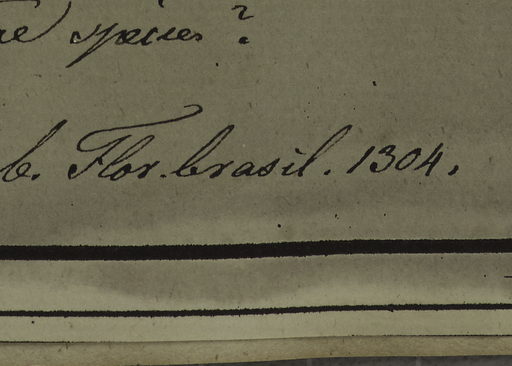 species?
b. Flor. brasil. 1304.